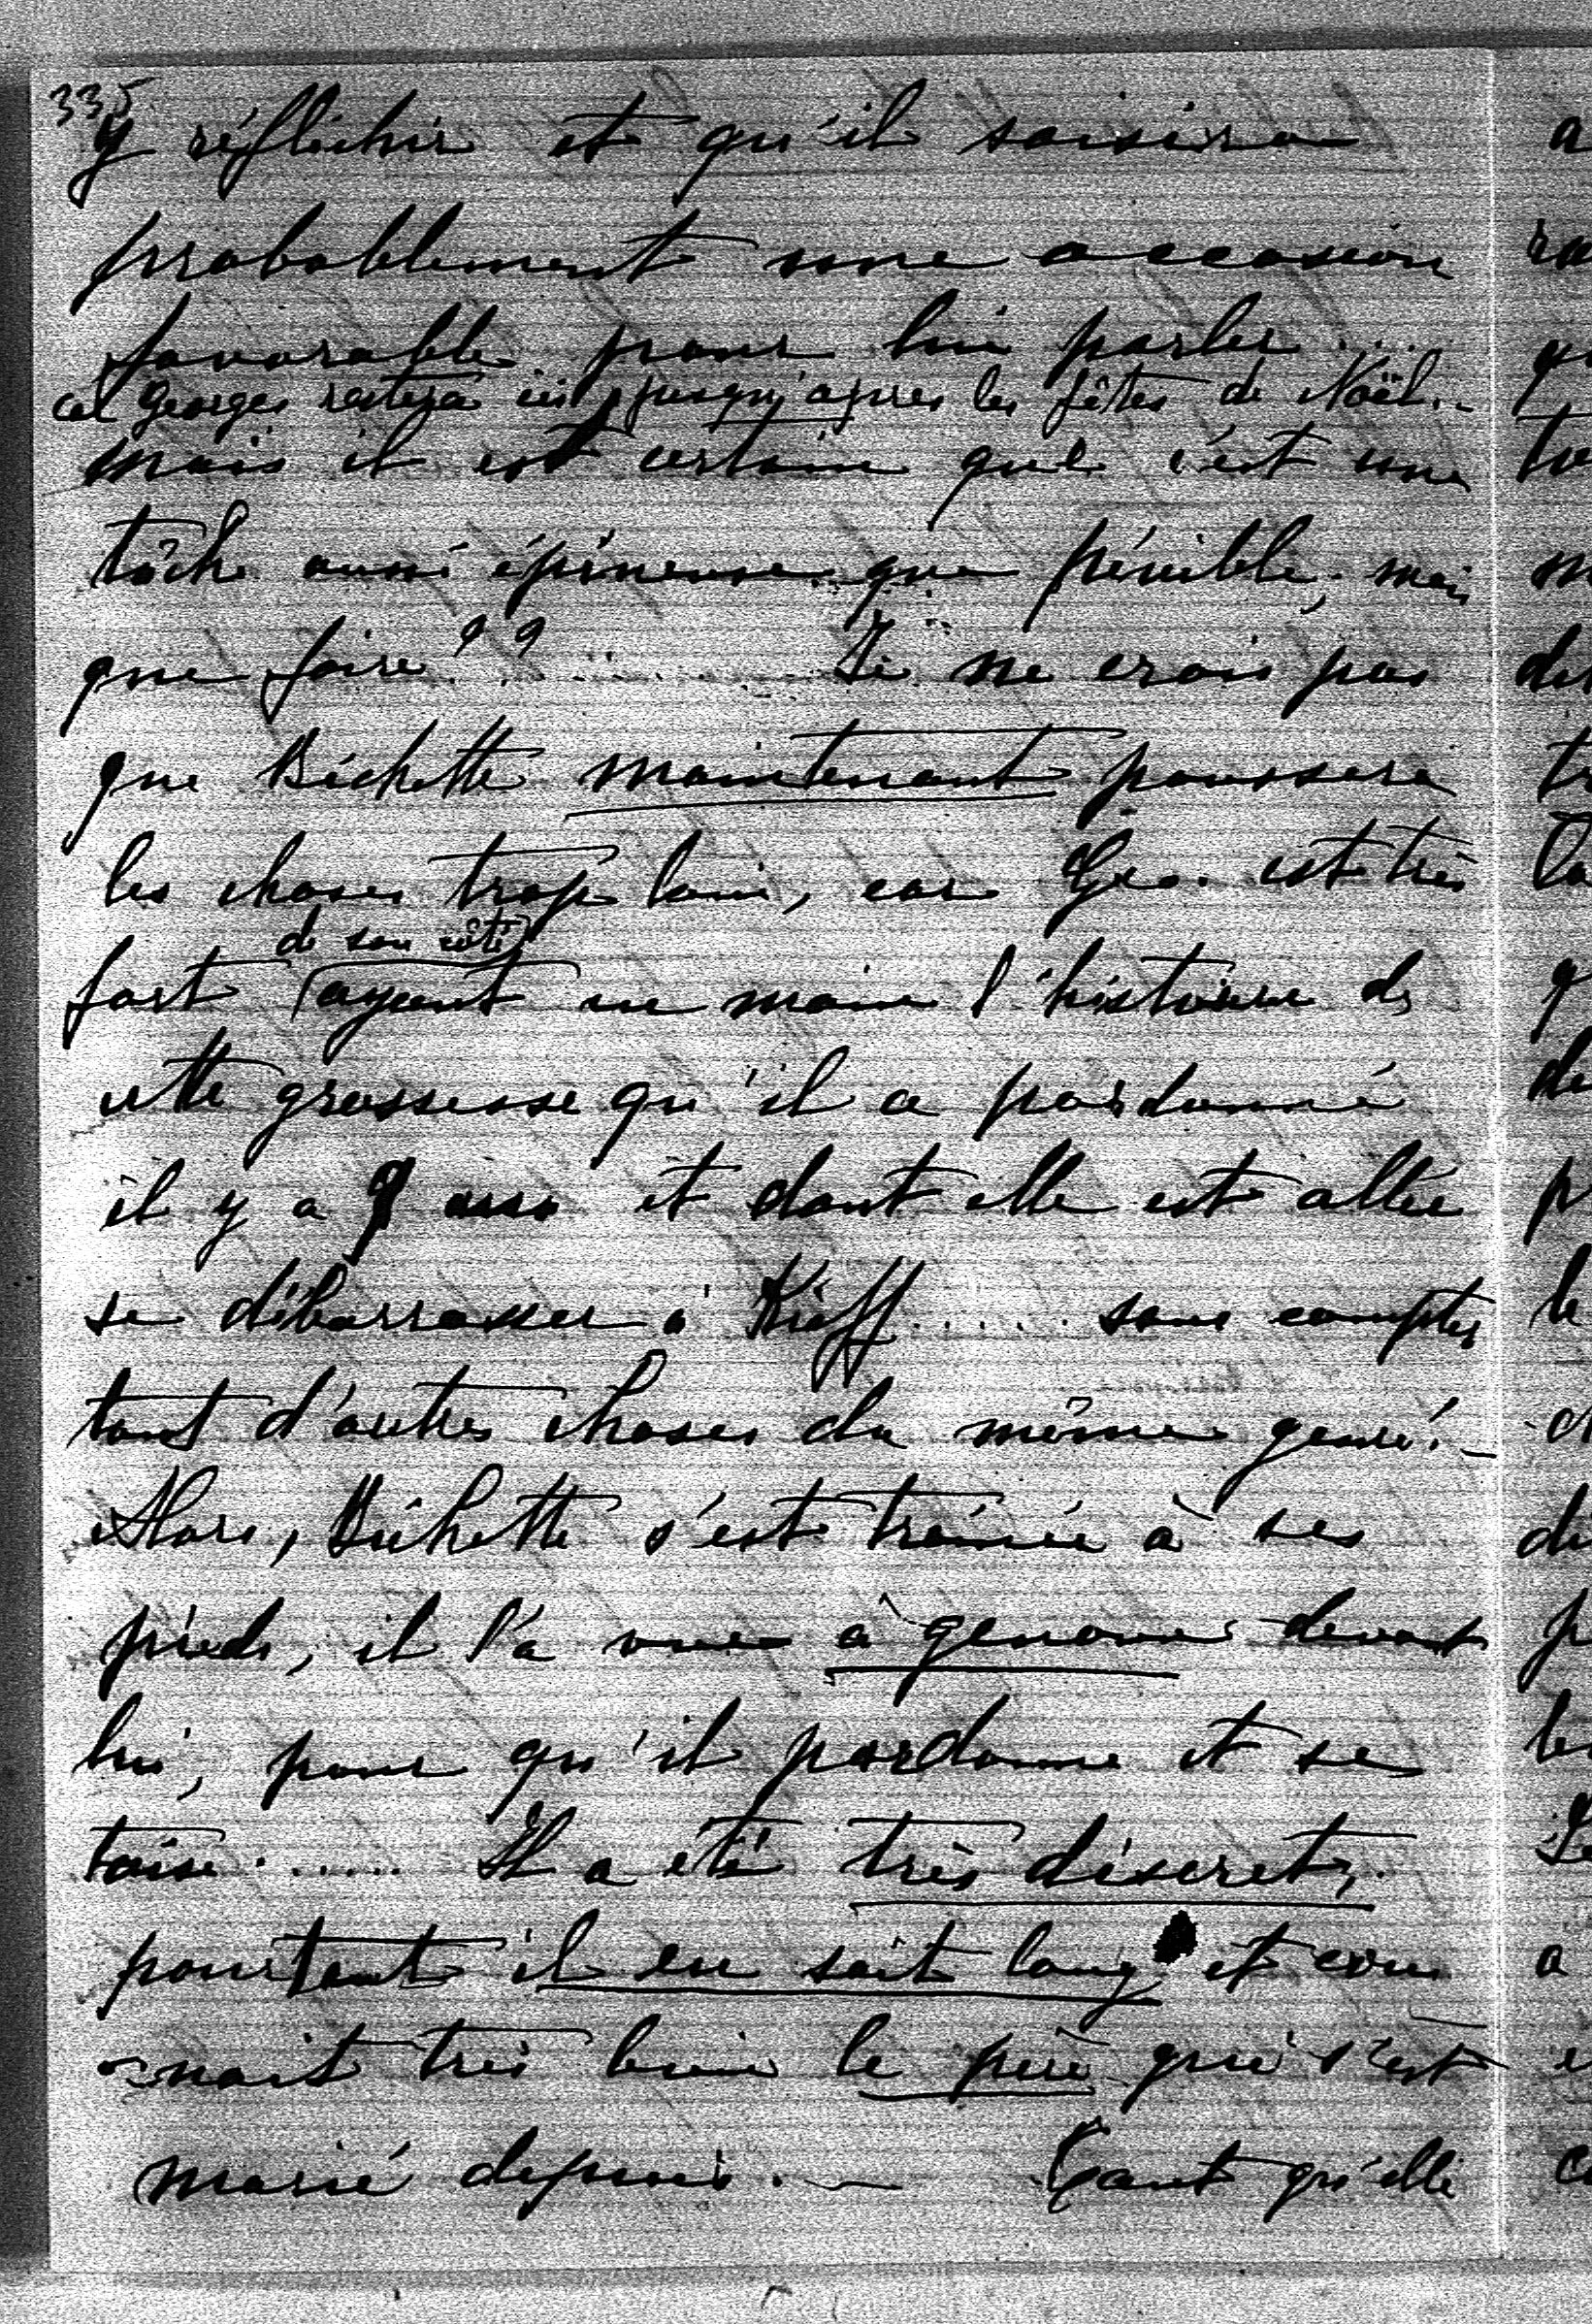 335
y réfléchir et qu'il saisira
probablement une occasion
favorable pour lui parler....
car Georges restera ici jusqu'apres les fêtes de Noël.-
mais il est certain que c'est une
tâche aussi épineuse que pénible, mais
que faire?? ......... Je ne crois pas
que Bichette maintenant poussera
les choses trop loin, car Geo. est très
de son côté
fort ayant en main l'histoire de
cette grossesse qu'il a pardonné
il y a 9 ans et dont elle est allée
se débarrasser à Kieff...... sans compter
tant d'autres choses du même genre!-
Alors, Bichette s'est traînée à ses
pieds, il l'a vue à genoux devant
lui, pour qu'il pardonne et se
taise...... Il a été très discret,
pourtant il en sait long et con
-nait très bien le père qui s'est
marié depuis.- Tant qu'elle